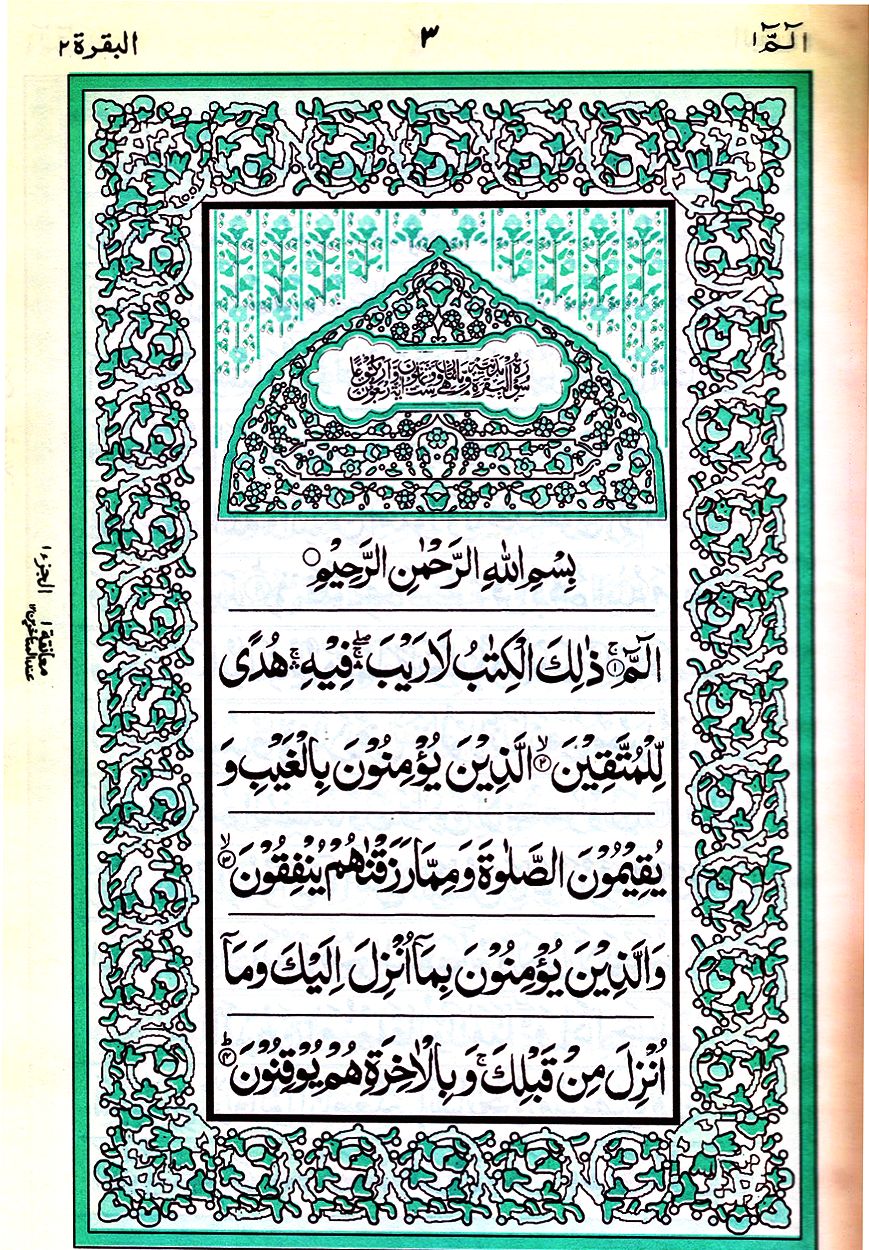 الٓمّٓ ١
٣
البقرة ٢
سُوْرَةُ الْبَقَرَةِ
بِسْمِ اللّٰهِ الرَّحْمٰنِ الرَّحِيْمِ ○
الٓمّٓ ۚ﴿١﴾ ذٰلِكَ الْكِتٰبُ لَا رَيْبَ ۛۖ فِيْهِ ۛۚ هُدًى
لِّلْمُتَّقِيْنَ ۙ﴿٢﴾ الَّذِيْنَ يُؤْمِنُوْنَ بِالْغَيْبِ وَ
يُقِيْمُوْنَ الصَّلٰوةَ وَمِمَّا رَزَقْنٰهُمْ يُنْفِقُوْنَ ۙ﴿٣﴾
وَالَّذِيْنَ يُؤْمِنُوْنَ بِمَآ اُنْزِلَ اِلَيْكَ وَمَآ
اُنْزِلَ مِنْ قَبْلِكَ ۚ وَبِالْاٰخِرَةِ هُمْ يُوْقِنُوْنَ ؕ﴿٤﴾
الجزء ١
معانقة ١
عند المتاخرين ١٢